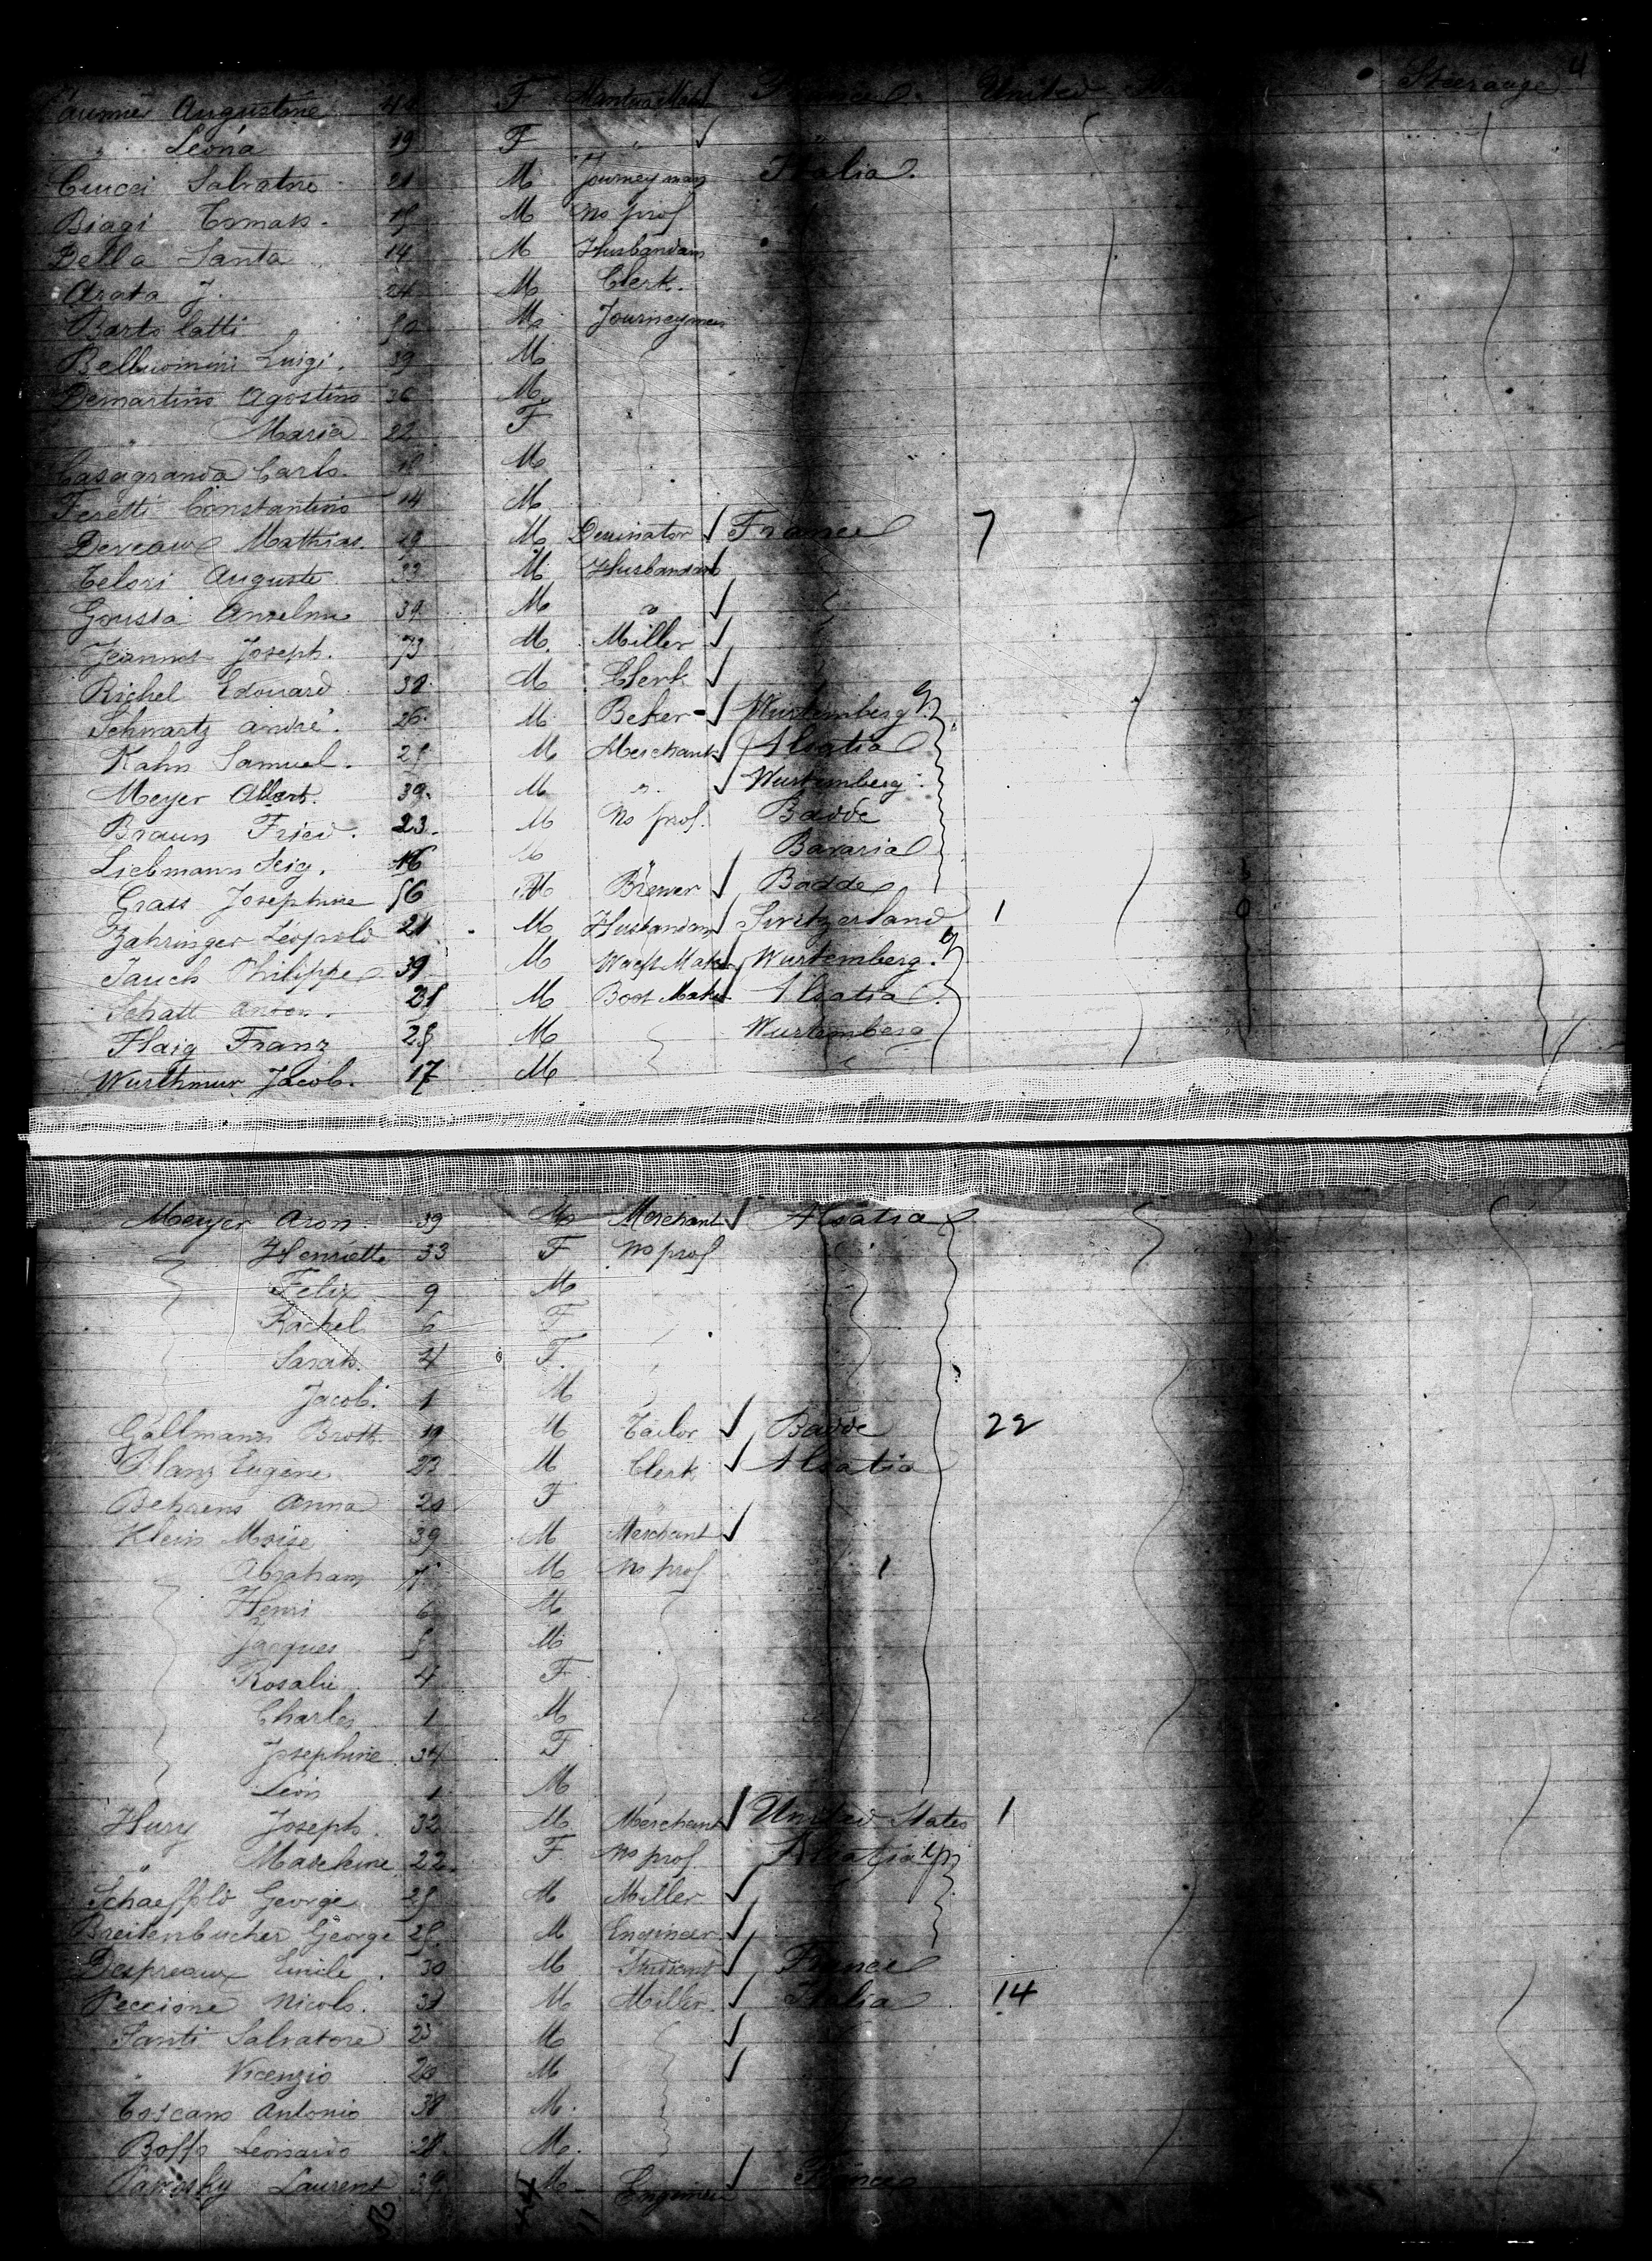 Augustine 44 F Mantua Maker France. United Steerage 4
" Leona 19 F " "
Cucci Salvatore 21 M Journeyman Italia.
Biagi Tomass. 18 M no prof
Della Santa 14 M Husbandman
Arata J. 24 M Clerk.
Bartolatti M Journeyman
Belluomini Luigi. 39 M
Demartino Agostino 36 M
" Maria 22 F
Casagranda Carlo. 18 M
Feretti Constantino 14 M
Deveaux Mathias. 19 M France 7
Telori Auguste 33 M Husbandman
Anselme 39 M "
Jeannot Joseph. 73 M. Miller
Richel Edouard 38 M Clerk
Schwartz André. 26. M Beker Wurtemberg
Kahn Samuel. 25 M Merchant Alsatia
Meyer Albert. 39. M " Wurtemberg.
Braun Fried. 23. M No prof. Badde
Liebmann Seig. 16 M " Bavaria
Grass Josephine 56 M Brewer Badde
Zahringer Leopold 21 M Husbandman Switzerland 1
Jauch Philippe 39 M Maker Wurtemberg.
Schatt Anton. 25 M Boot Maker Alsatia
Flaig Franz 25 M Wurtemberg
Wurthmur Jacob. 17 M
Meyer Aron 39 M Merchant Alsatia
Henriette 33 F no prof
Felix 9 M
Rachel 6 F
Sarah. 4 F.
Jacob. 1 M
Gallmann Brott. 19 M Tailor Badde 22
Blanz Eugene 23 M Clerk Alsatia
Behrens Anna 20 F "
Klein Moise 39 M Merchant
Abraham 7 M no prof
Henri 6 M
Jacques 5 M
Rosalie 4 F
Charles 1 M
Josephine 34 F
Leon 1 M
Hury Joseph. 32 M Merchant United States 1
" Madeleine 22 F no prof. Alsatia
Schaeffold George 25 M Miller
Breitenbucher George 25 M Engineer
Despreaux Emile. 30 M Student France
Peccione Nicolo. 31 M Miller Italia 14
Santi Salvatore 23 M
" Vicenzio 20 M
Toscano Antonio 38 M.
Boffo Leonardo 28 M.
Laurent 39 M Engineer France